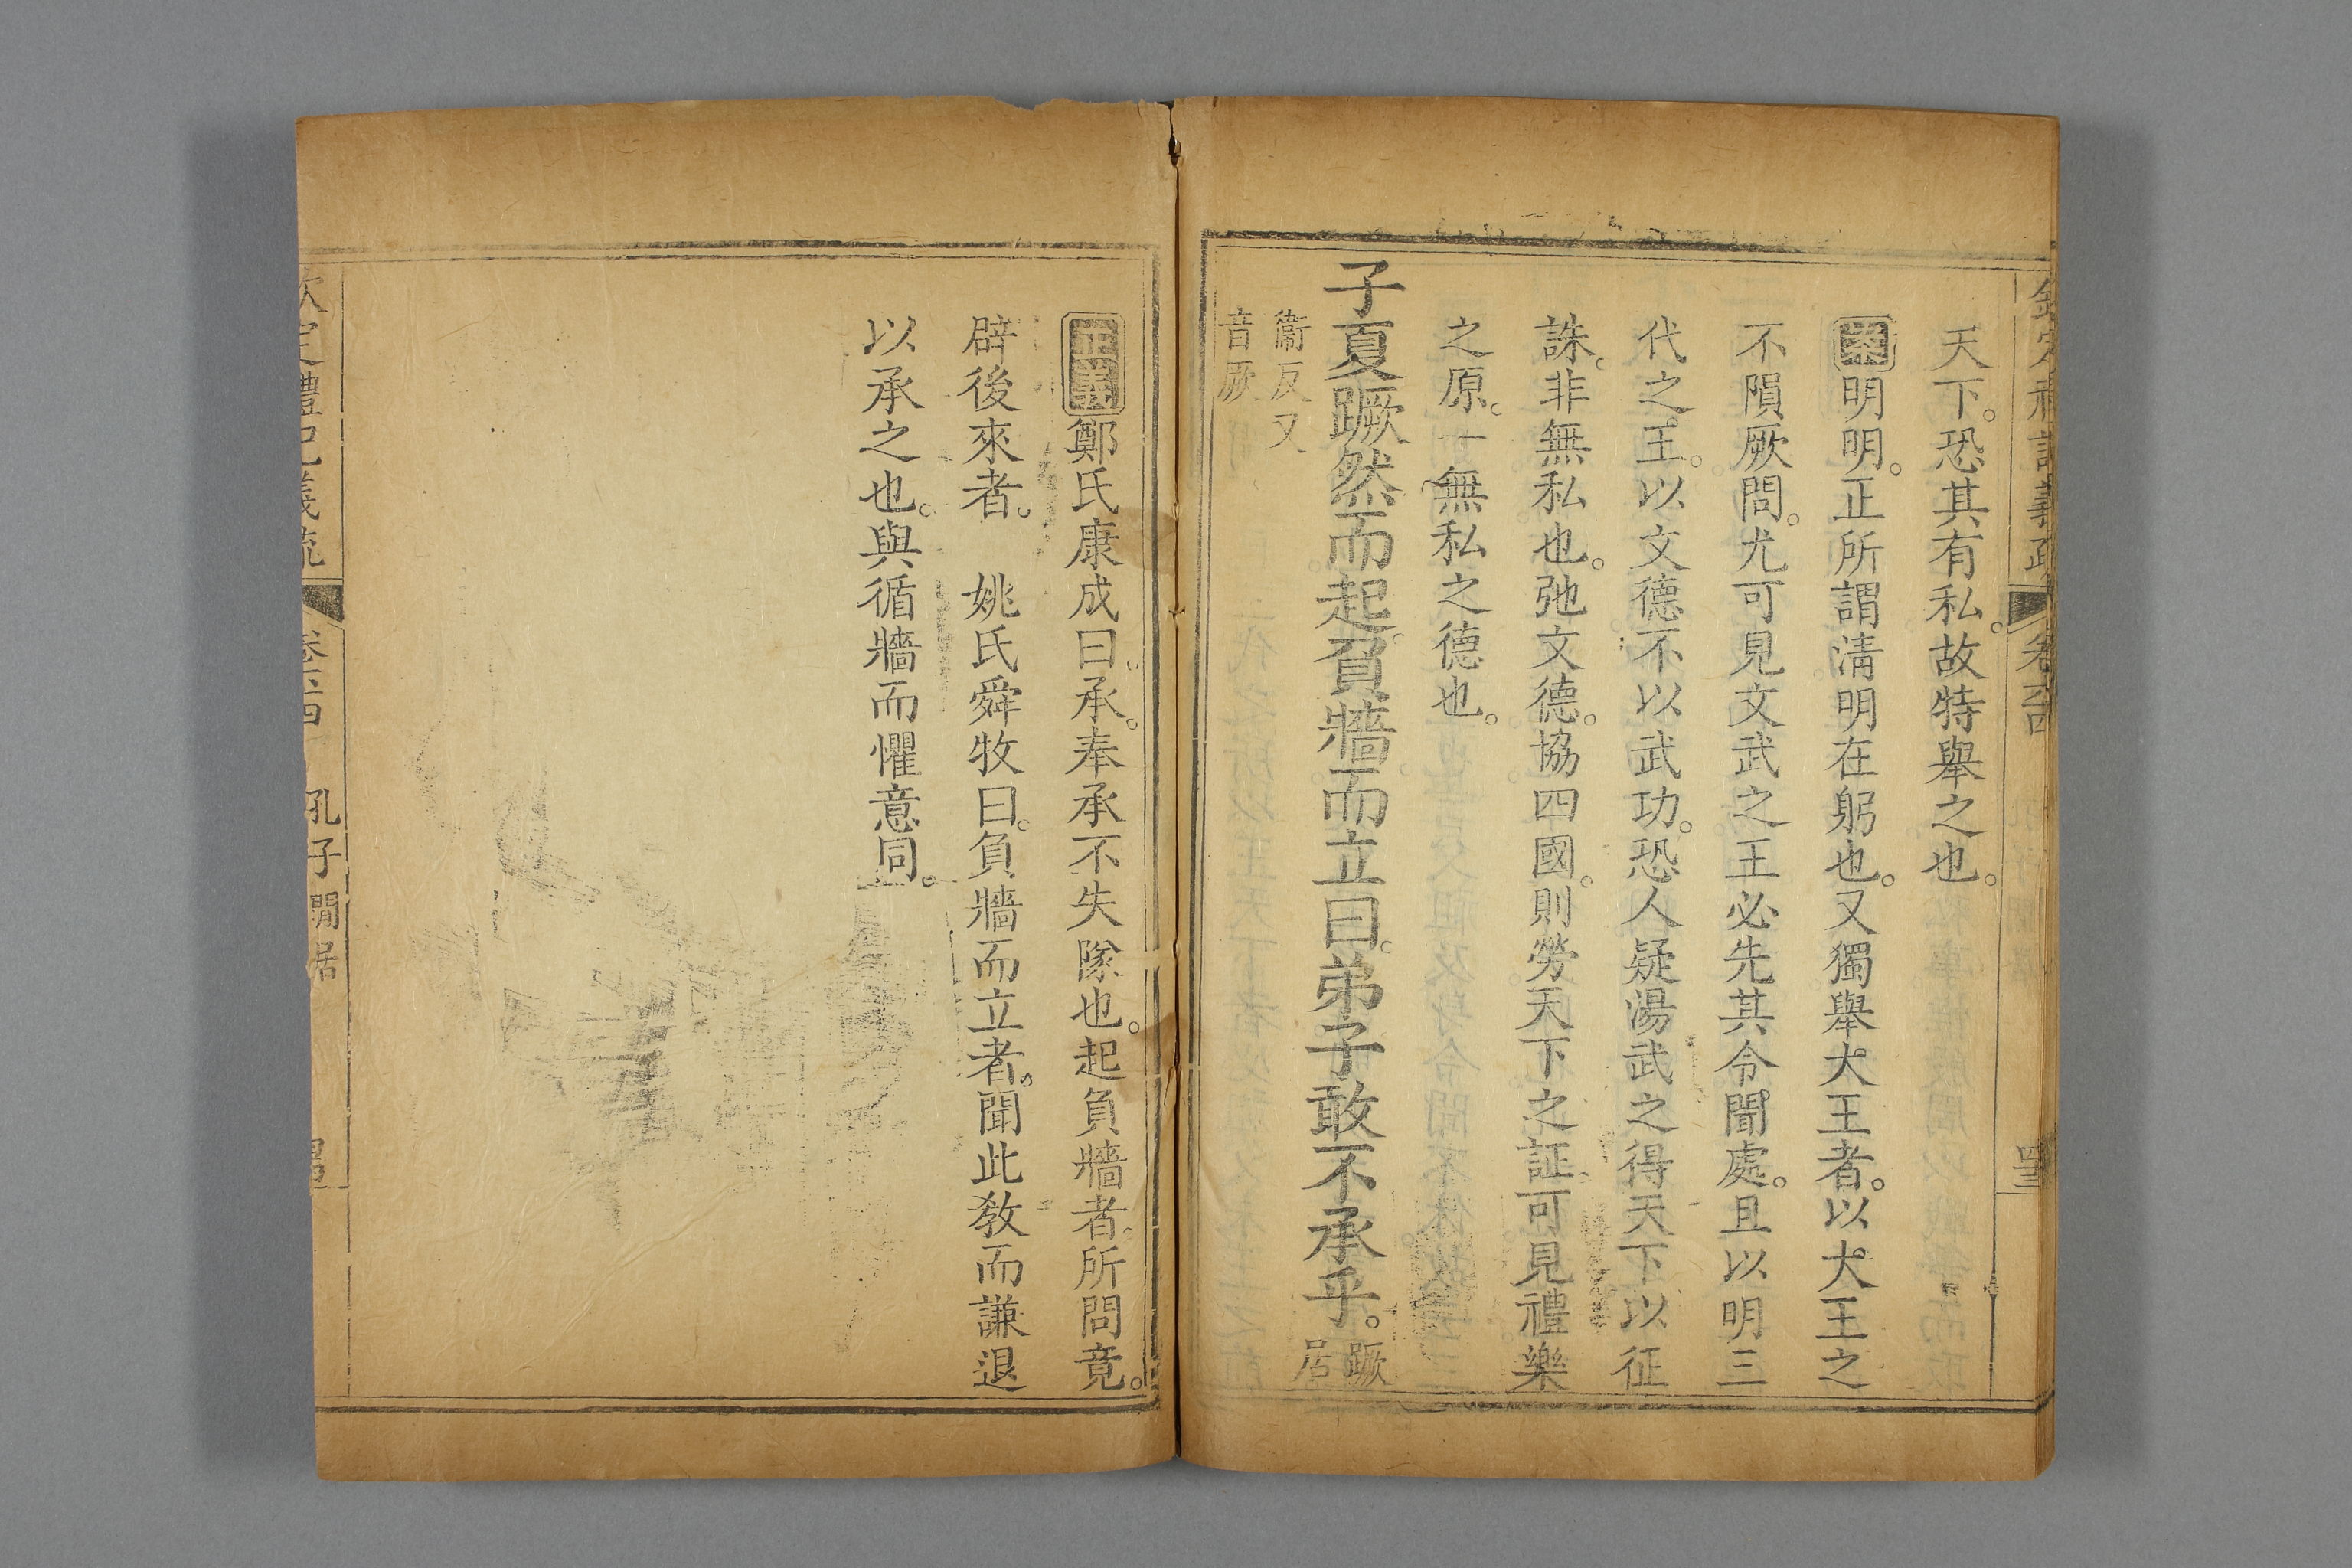 欽定禮記義疏 卷六十四 四三
天下。恐其有私。故特舉之也。
案明明。正所謂淸明在躬也。又獨舉大王者。以大王之
不隕厥問。尤可見文武之王必先其令聞處。且以明三
代之王。以文德不以武功。恐人疑湯武之得天下以征
誅。非無私也。弛文德。協四國。則勞天下之証。可見禮樂
之原。一無私之德也。
子夏蹶然而起。負牆而立曰。弟子敢不承乎。蹶居
衞反又
音厥
正義鄭氏康成曰。承。奉承不失隊也。起負牆者。所問竟。
辟後來者。 姚氏舜牧曰。負牆而立者。聞此敎而謙退
以承之也。與循牆而懼意同。
欽定禮記義疏 卷六十四 孔子閒居